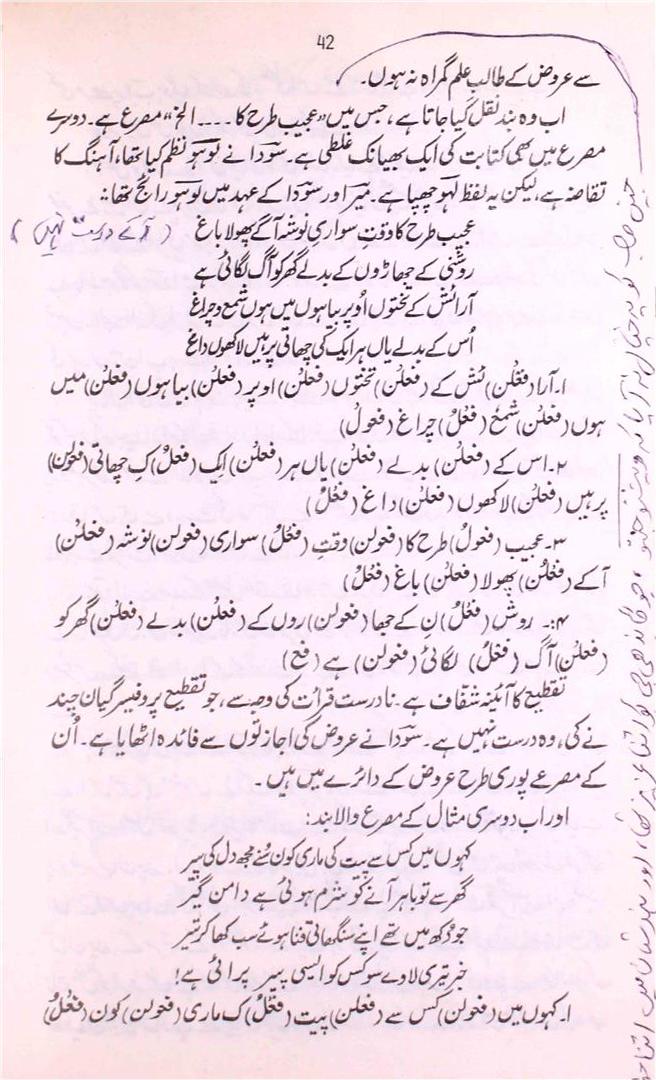 42
سے عروض کے طالب علم گمراہ نہ ہوں۔
اب وہ بند نقل کیا جاتا ہے، جس میں "عجیب طرح کا .... الخ" مصرع ہے۔ دوسرے
مصرع میں بھی کتابت کی ایک بھیانک غلطی ہے۔ سودا نے لوہو نظم کیا تھا، آہنگ کا
تقاضہ ہے، لیکن یہ لفظ لہو چھپا ہے۔ میر اور سودا کے عہد میں لوہو رائج تھا:
عجیب طرح کا وقتِ سواریِ نوشہ آگے پھولا باغ
روشنی کے جھاڑوں کے بدلے گھر کو آگ لگائی ہے
آرائش کے تختوں اُوپر بیاہوں میں ہوں شمع و چراغ
اُس کے بدلے یاں ہر ایک کی چھاتی پر ہیں لاکھوں داغ
۱۔ آرا (فعْلن) ئش کے (فعلن) تختوں (فعلن) اوپر (فعلن) بیاہوں (فعلن) میں
ہوں (فعلن) شمع (فعْلُ) چراغ (فعول)
۲۔ اس کے (فعلن) بدلے (فعلن) یاں ہر (فعلن) ایک (فعلُ) کِ چھاتی (فعولن)
پر ہیں (فعلن) لاکھوں (فعلن) داغ (فعْلُ)
۳۔ عجیب (فعولُ) طرح کا (فعولن) وقتِ (فعْلُ) سواری (فعولن) نوشہ (فعلن)
آگے (فعْلن) پھولا (فعلن) باغ (فعْلُ)
۴:۔ روش (فعْلُ) نِ کے جھا (فعولن) روں کے (فعلن) بدلے (فعلن) گھر کو
(فعلن) آگ (فعْلُ) لگائی (فعولن) ہے (فع)
تقطیع کا آئینہ شفاف ہے۔ نادرست قرأت کی وجہ سے، جو تقطیع پروفیسر گیان چند
نے کی، وہ درست نہیں ہے۔ سودا نے عروض کی اجازتوں سے فائدہ اٹھایا ہے۔ اُن
کے مصرعے پوری طرح عروض کے دائرے میں ہیں۔
اور اب دوسری مثال کے مصرع والا بند:
کہوں میں کس سے پیت کی ماری کون سُنے مجھ دل کی پیر
گھر سے تو باہر آنے کو شرم ہوئی ہے دامن گیر
جو دکھ میں تھے اپنے سنگھاتی فنا ہوئے سب کھا کر تیر
خبر تیری لاوے سو کس کو ایسی پیر پرائی ہے!
۱۔ کہوں میں (فعولن) کس سے (فعلن) پیت (فعْلُ) ک ماری (فعولن) کون (فعْلُ)